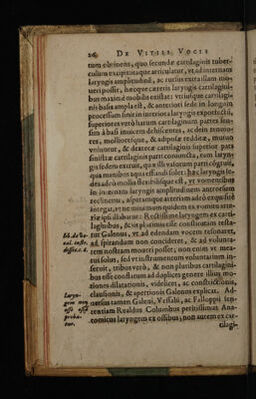 26 DE VITIIS VOCIS
tum obtinens, quo secundæ cartilaginis tuber-
culum excipitur, atque articulatur, vt ad internam
laryngis amplitudinē, ac rursus extra illam mo-
ueri possit, hæcque cæteris laryngis cartilagini-
bus maximè mobilis existat: vtriusque cartilagi-
nis basis ampla est, & anteriori sede in longum
processum sinit in interiora laryngis exporrectū,
superiores verò harum cartilaginum partes
sim à basi inuicem dehiscentes, ac dein tenuio-
res, mollioresque, & adiposæ redditæ, mutuò
voluuntur, & dextræ cartilaginis superior pars
sinistræ cartilaginis parti coniuncta, eam laryn-
gis sedem extruit, quæ illi valorum parti cōgruit,
qua manibus aqua effundi solet: hæc laryngis se-
des adeò mollis flexibilisque est, vt vomentibus
in internam laryngis amplitudinem antrorsum
reclinetur, asperamque arteriam adeò exquisitè
integat, vt ne minutum quidem ex vomitu arte-
riæ ipsi illabatur: Rectissimè laryngem ex carti-
laginibus, & vix plurimis esse constructam testa-
tur Galenus, vt ad edendam vocem resonaret,
ad spirandum non concideret, & ad volunta-
tem nostram moueri posset; non enim vt mea-
tus solus, sed vt instrumentum voluntarium in-
seruit, tribus verò, & non pluribus cartilagini-
bus esse constātam ad duplices genere illius mo-
tiones dilatationis, videlicet, ac constrictionis,
clausionis, & apertionis Galenus explicat. Ad-
uersus tamen Galeni, Vesalij, ac Falloppij sen-
tentiam Realdus Columbus peritissimus Ana-
tomicus laryngem ex ossibus, non autem ex car-
tilagi-
Laryn-
gem non
esse
proba-
tur.